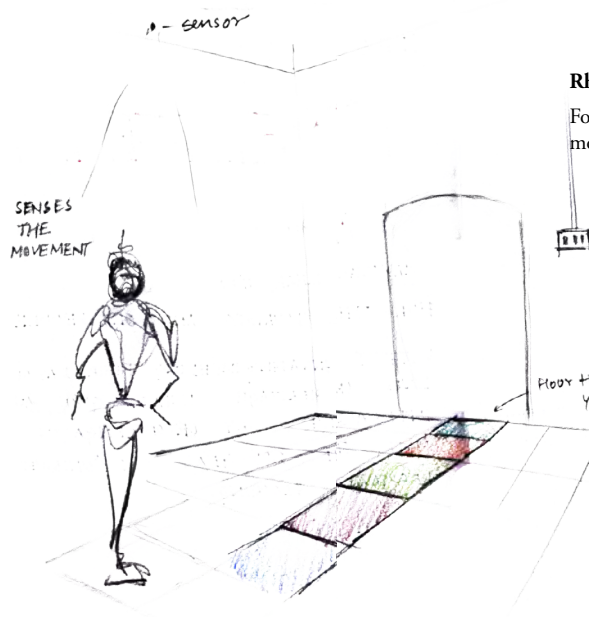 - sensor
Rh
Fo
mo
SENSES
THE
MOVEMENT
Floor